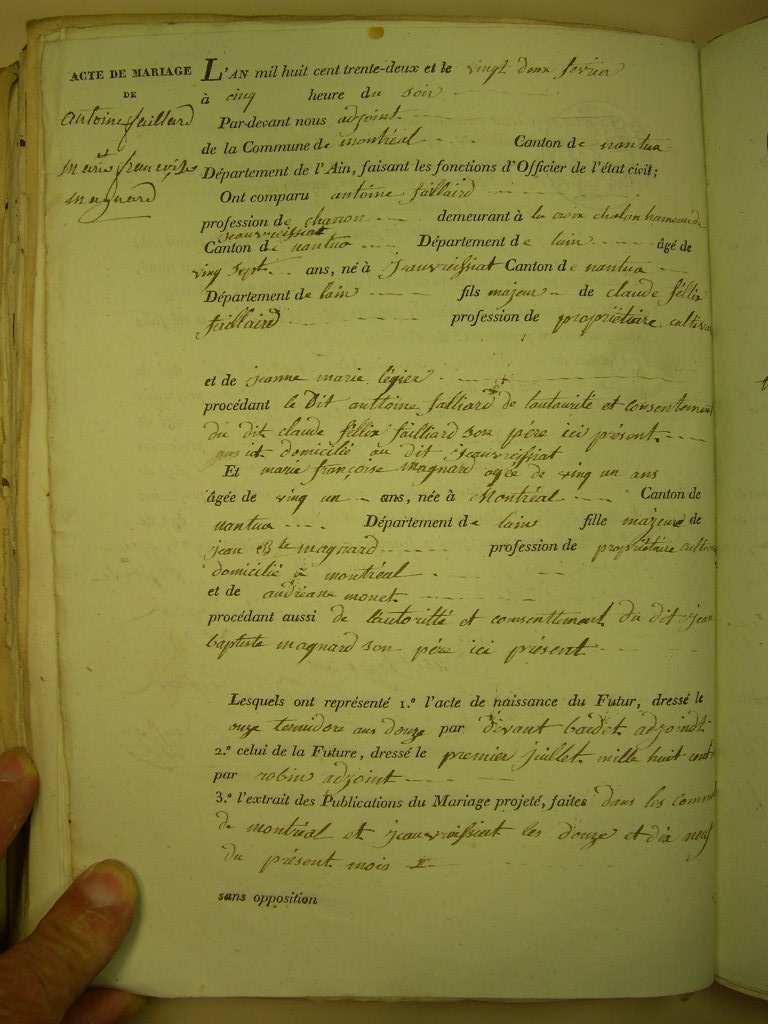 ACTE DE MARIAGE
DE
antoine faillard
et
marie françoise
magnard
L'AN mil huit cent trente-deux et le vingt deux fevrier
à cinq heure du soir
Par-devant nous adjoint
de la Commune de montréal Canton de nantua
Département de l'Ain, faisant les fonctions d'Officier de l'état civil;
Ont comparu antoine faillaird
profession de charron demeurant à la croix chalon hameau de
jeauvreissiat
Canton de nantua Département de lain âgé de
vinq sept ans, né à jeauvreissiat Canton de nantua
Département de lain fils majeur de claude féllix
faillaird profession de propriétaire cultiva
et de jeanne marie légier
procédant le Dit anttoine failliard de lautaurité et consentement
du dit claude féllix failliard son père ici présent.
domicilié au dit jeauvreissiat
Et marie françoise magnard agée de vinq un ans
âgée de vinq un ans, née à Montréal Canton de
nantua Département de lain fille majeure de
jean Bte magnard profession de propriétaire cultiva
domicilié à montréal
et de andréane monet
procédant aussi de l'autoritté et consenttement du dit jean
baptiste magnard son père ici présent
Lesquels ont représenté 1.º l'acte de naissance du Futur, dressé le
onze termidore ans douze par devant baudet adjoindt
2.º celui de la Future, dressé le premier juillet mille huit cent
par robin adjoint
3.º l'extrait des Publications du Mariage projeté, faites dans les commu
de montréal et jeauvreissiat les douze et dix neuf
du présent mois
sans opposition